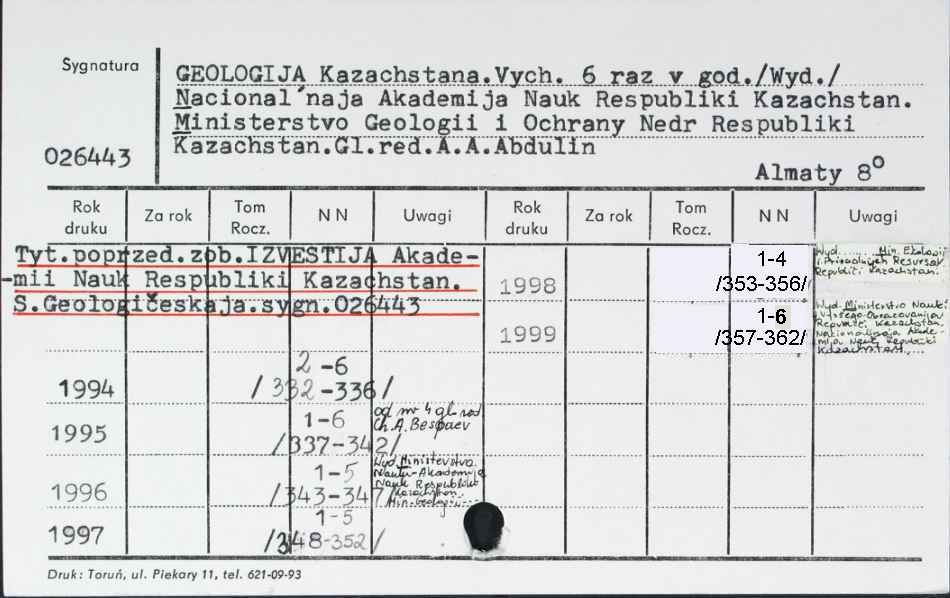 Sygnatura
GEOLOGIJA Kazachstana.Vych. 6 raz v god./Wyd./
Nacional´naja Akademija Nauk Respubliki Kazachstan.
Ministerstvo Geologii i Ochrany Nedr Respubliki
026443
Kazachstan.Gl.red.A.A.Abdulin
Almaty 8°
Rok druku Za rok Tom Rocz. N N Uwagi Rok druku Za rok Tom Rocz. N N Uwagi
Tyt.poprzed.zob.IZVESTIJA Akade-
-mii Nauk Respubliki Kazachstan.
S.Geologičeskaja.sygn.026443
1994 2-6
/332-336/
1995 1-6 od nr 4 gl. red
Ch.A.Bespaev
/337-342/
1996 1-5 Wyd. Ministerstvo
Nauki-Akademija
Nauk Respubliki
/343-347/ Kazachstan.
Min. Geologii
1997 1-5
/348-352/
1998 1-4
/353-356/
Wyd. Min. Ekologii
i Prirodnych Resursov
Respubliki Kazachstan.
1999 1-6
/357-362/
Wyd. Ministerstvo Nauki
Vysšego Obrazovanija
Republ. Kazachstan.
Nacionalnaja Akade-
mija Nauk Republiki
Kazachstan.
Druk: Toruń, ul. Piekary 11, tel. 621-09-93